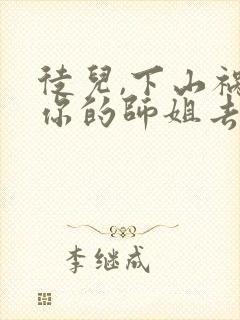 徒兒,下山禍
你的師姐去
李继成